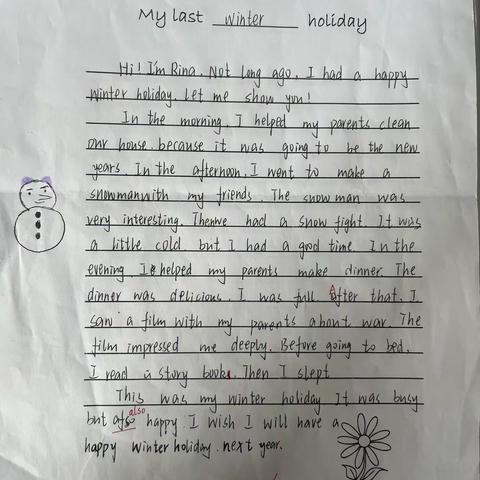 My last winter holiday
Hi! I'm Rina. Not long ago, I had a happy
winter holiday. Let me show you!
In the morning, I helped my parents clean
our house. because it was going to be the new
years. In the afternoon, I went to make a
snowmanwith my friends. The snow man was
very interesting. Thenwe had a snow fight. It was
a little cold. but I had a good time. In the
evening. I helped my parents make dinner. The
dinner was delicious. I was full. After that, I
saw a film with my parents about war. The
film impressed me deeply. Before going to bed,
I read a story books. Then I slept
This was my winter holiday. It was busy
but also also happy. I wish I will have a
happy winter holiday. next year.